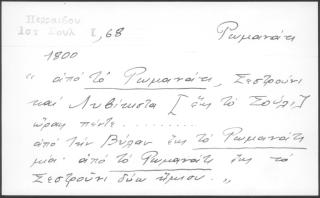 Περραιβου
Ιστ Σουλ Ι, 68
Ρωμανάτι
1800
" ἀπό τό Ρωμανάτι, Σεστρούνι
καί Λιβίκιστα [ ἕως τό Σούλι ]
ὥρας πέντε . . . . . . . . .
ἀπό τήν Βύλαν ἕως τό Ρωμανάτι
μία. ἀπό τό Ρωμανάτι ἕως τό
Σεστρούνι δύω ἥμισυ. "